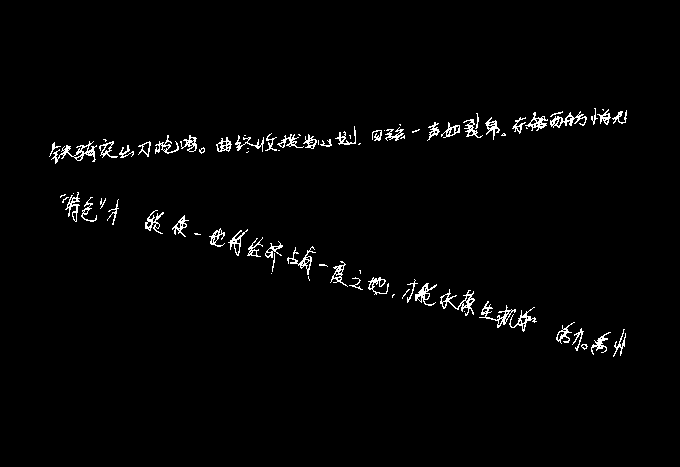 铁骑突出刀枪鸣。曲终收拨当心划,四弦一声如裂帛。东船西舫悄无
"特色"才能使一地的经济占有一度之地,才能永葆生机和活力。